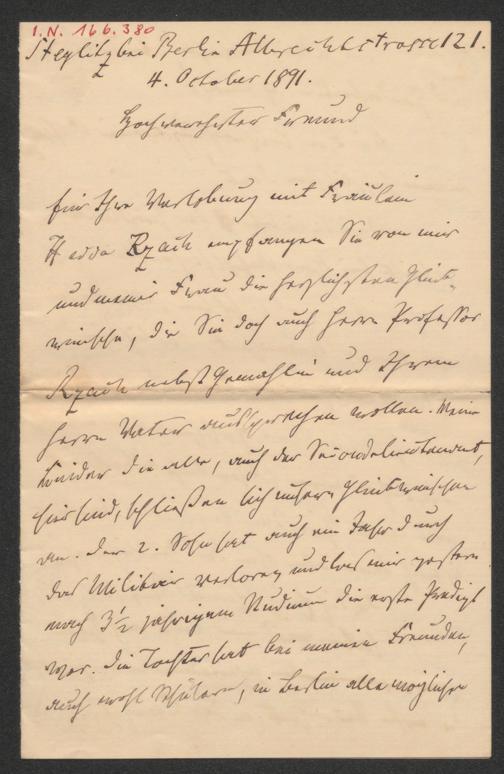 I.N. 166.380
Steglitz bei Berlin Albrechtstrasse 121.
4. October 1891.
Hochverehrter Freund
für Ihre Verlobung mit Fräulein
Hedda Rzach empfangen Sie von mir
und meiner Frau die herzlichsten Glück-
wünsche, die Sie doch auch Herrn Professor
Rzach nebst Gemahlin und Ihrem
Herrn Vater aussprechen wollen. Meine
Kinder die alle, auch der Secondelieutenant,
hier sind, schließen sich unsern Glückwünschen
an. Der 2. Sohn hat auch ein Jahr durch
das Militär verloren und las mir gestern
nach 3½ jährigem Studium die erste Predigt
vor. Die Tochter hat bei meinen Freunden,
auch wohl Schülern, in Berlin alle möglichen